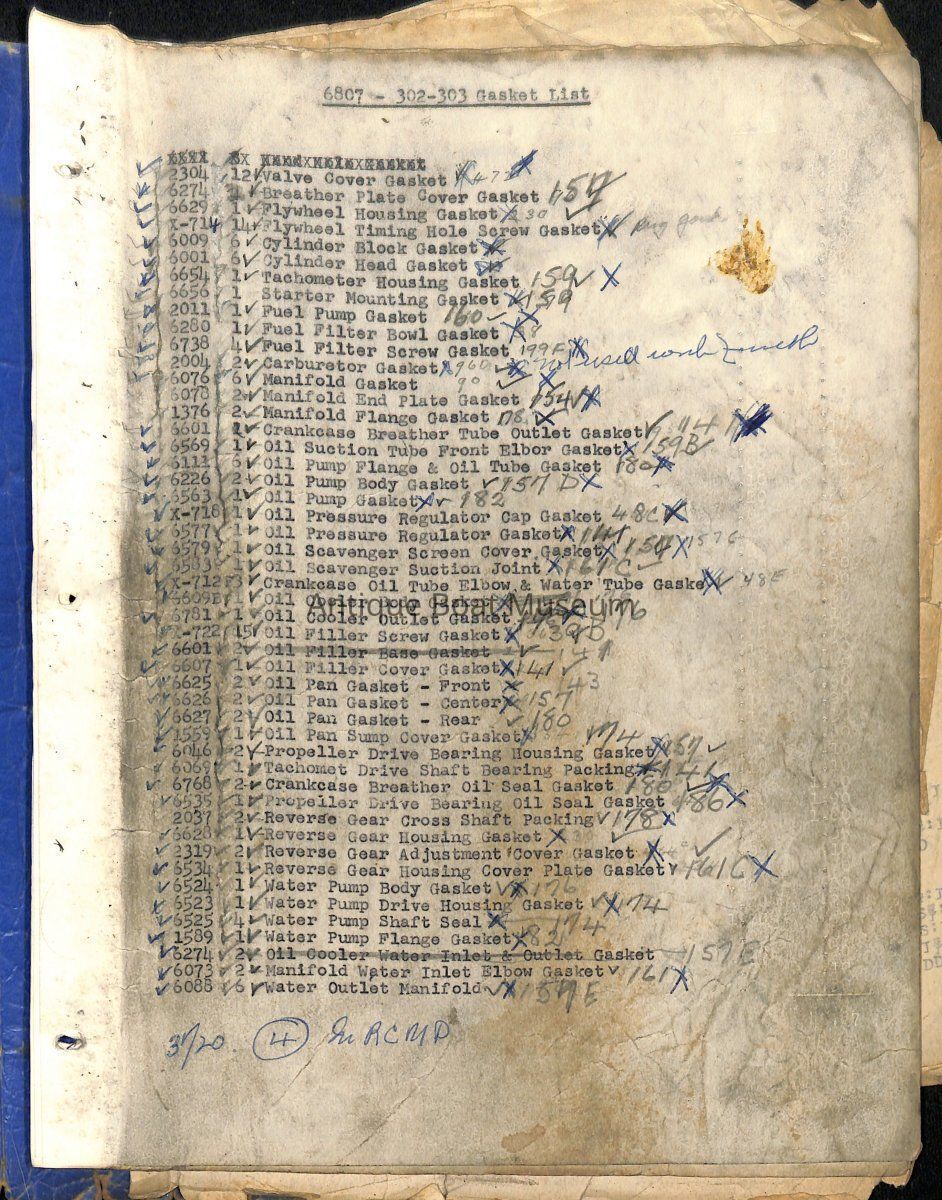 6807 - 302-303 Gasket List
2304 12 Valve Cover Gasket
6274 Breather Plate Cover Gasket 157
6629 1 Flywheel Housing Gasket
X-714 14 Flywheel Timing Hole Screw Gasket
6009 6 Cylinder Block Gasket
6001 6 Cylinder Head Gasket
6654 1 Tachometer Housing Gasket 159
6656 1 Starter Mounting Gasket 159
2011 1 Fuel Pump Gasket 160
6280 1 Fuel Filter Bowl Gasket
6738 4 Fuel Filter Screw Gasket 199F
2004 2 Carburetor Gasket used with
6076 6 Manifold Gasket 90
6078 2 Manifold End Plate Gasket 154
1376 2 Manifold Flange Gasket 178
6601 Crankcase Breather Tube Outlet Gasket 141
6569 1 Oil Suction Tube Front Elbor Gasket 159B
6111 6 Oil Pump Flange & Oil Tube Gasket 180
6226 2 Oil Pump Body Gasket 157 D
6563 1 Oil Pump Gasket 182
X-718 1 Oil Pressure Regulator Cap Gasket 48C
6577 1 Oil Pressure Regulator Gasket 141
6579 1 Oil Scavenger Screen Cover Gasket 157 157G
6583 1 Oil Scavenger Suction Joint 161C
X-712 3 Crankcase Oil Tube Elbow & Water Tube Gasket 48E
6609B 1 Oil Cooler Gasket
Antique Boat Museum
6781 1 Oil Cooler Outlet Gasket 176
X-722 15 Oil Filler Screw Gasket 39D
6601 2 Oil Filler Base Gasket
6607 1 Oil Filler Cover Gasket 141
6625 2 Oil Pan Gasket - Front 143
6626 2 Oil Pan Gasket - Center 157
6627 2 Oil Pan Gasket - Rear 180
1559 1 Oil Pan Sump Cover Gasket 174
6046 2 Propeller Drive Bearing Housing Gasket 157
6069 1 Tachomet Drive Shaft Bearing Packing 141
6768 2 Crankcase Breather Oil Seal Gasket 180
6535 1 Propeller Drive Bearing Oil Seal Gasket 186
2037 2 Reverse Gear Cross Shaft Packing 178
6628 1 Reverse Gear Housing Gasket
2319 2 Reverse Gear Adjustment Cover Gasket
6534 1 Reverse Gear Housing Cover Plate Gasket 161C
6524 1 Water Pump Body Gasket 176
6523 1 Water Pump Drive Housing Gasket 174
6525 4 Water Pump Shaft Seal 174
1589 1 Water Pump Flange Gasket 82
6274 2 Oil Cooler Water Inlet & Outlet Gasket 157E
6073 2 Manifold Water Inlet Elbow Gasket 161
6088 6 Water Outlet Manifold 157E
4 In RCMP